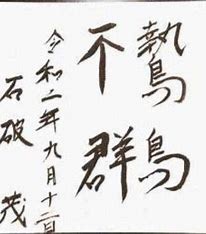 鷙鳥
不群
令和二年九月十二日
石破茂